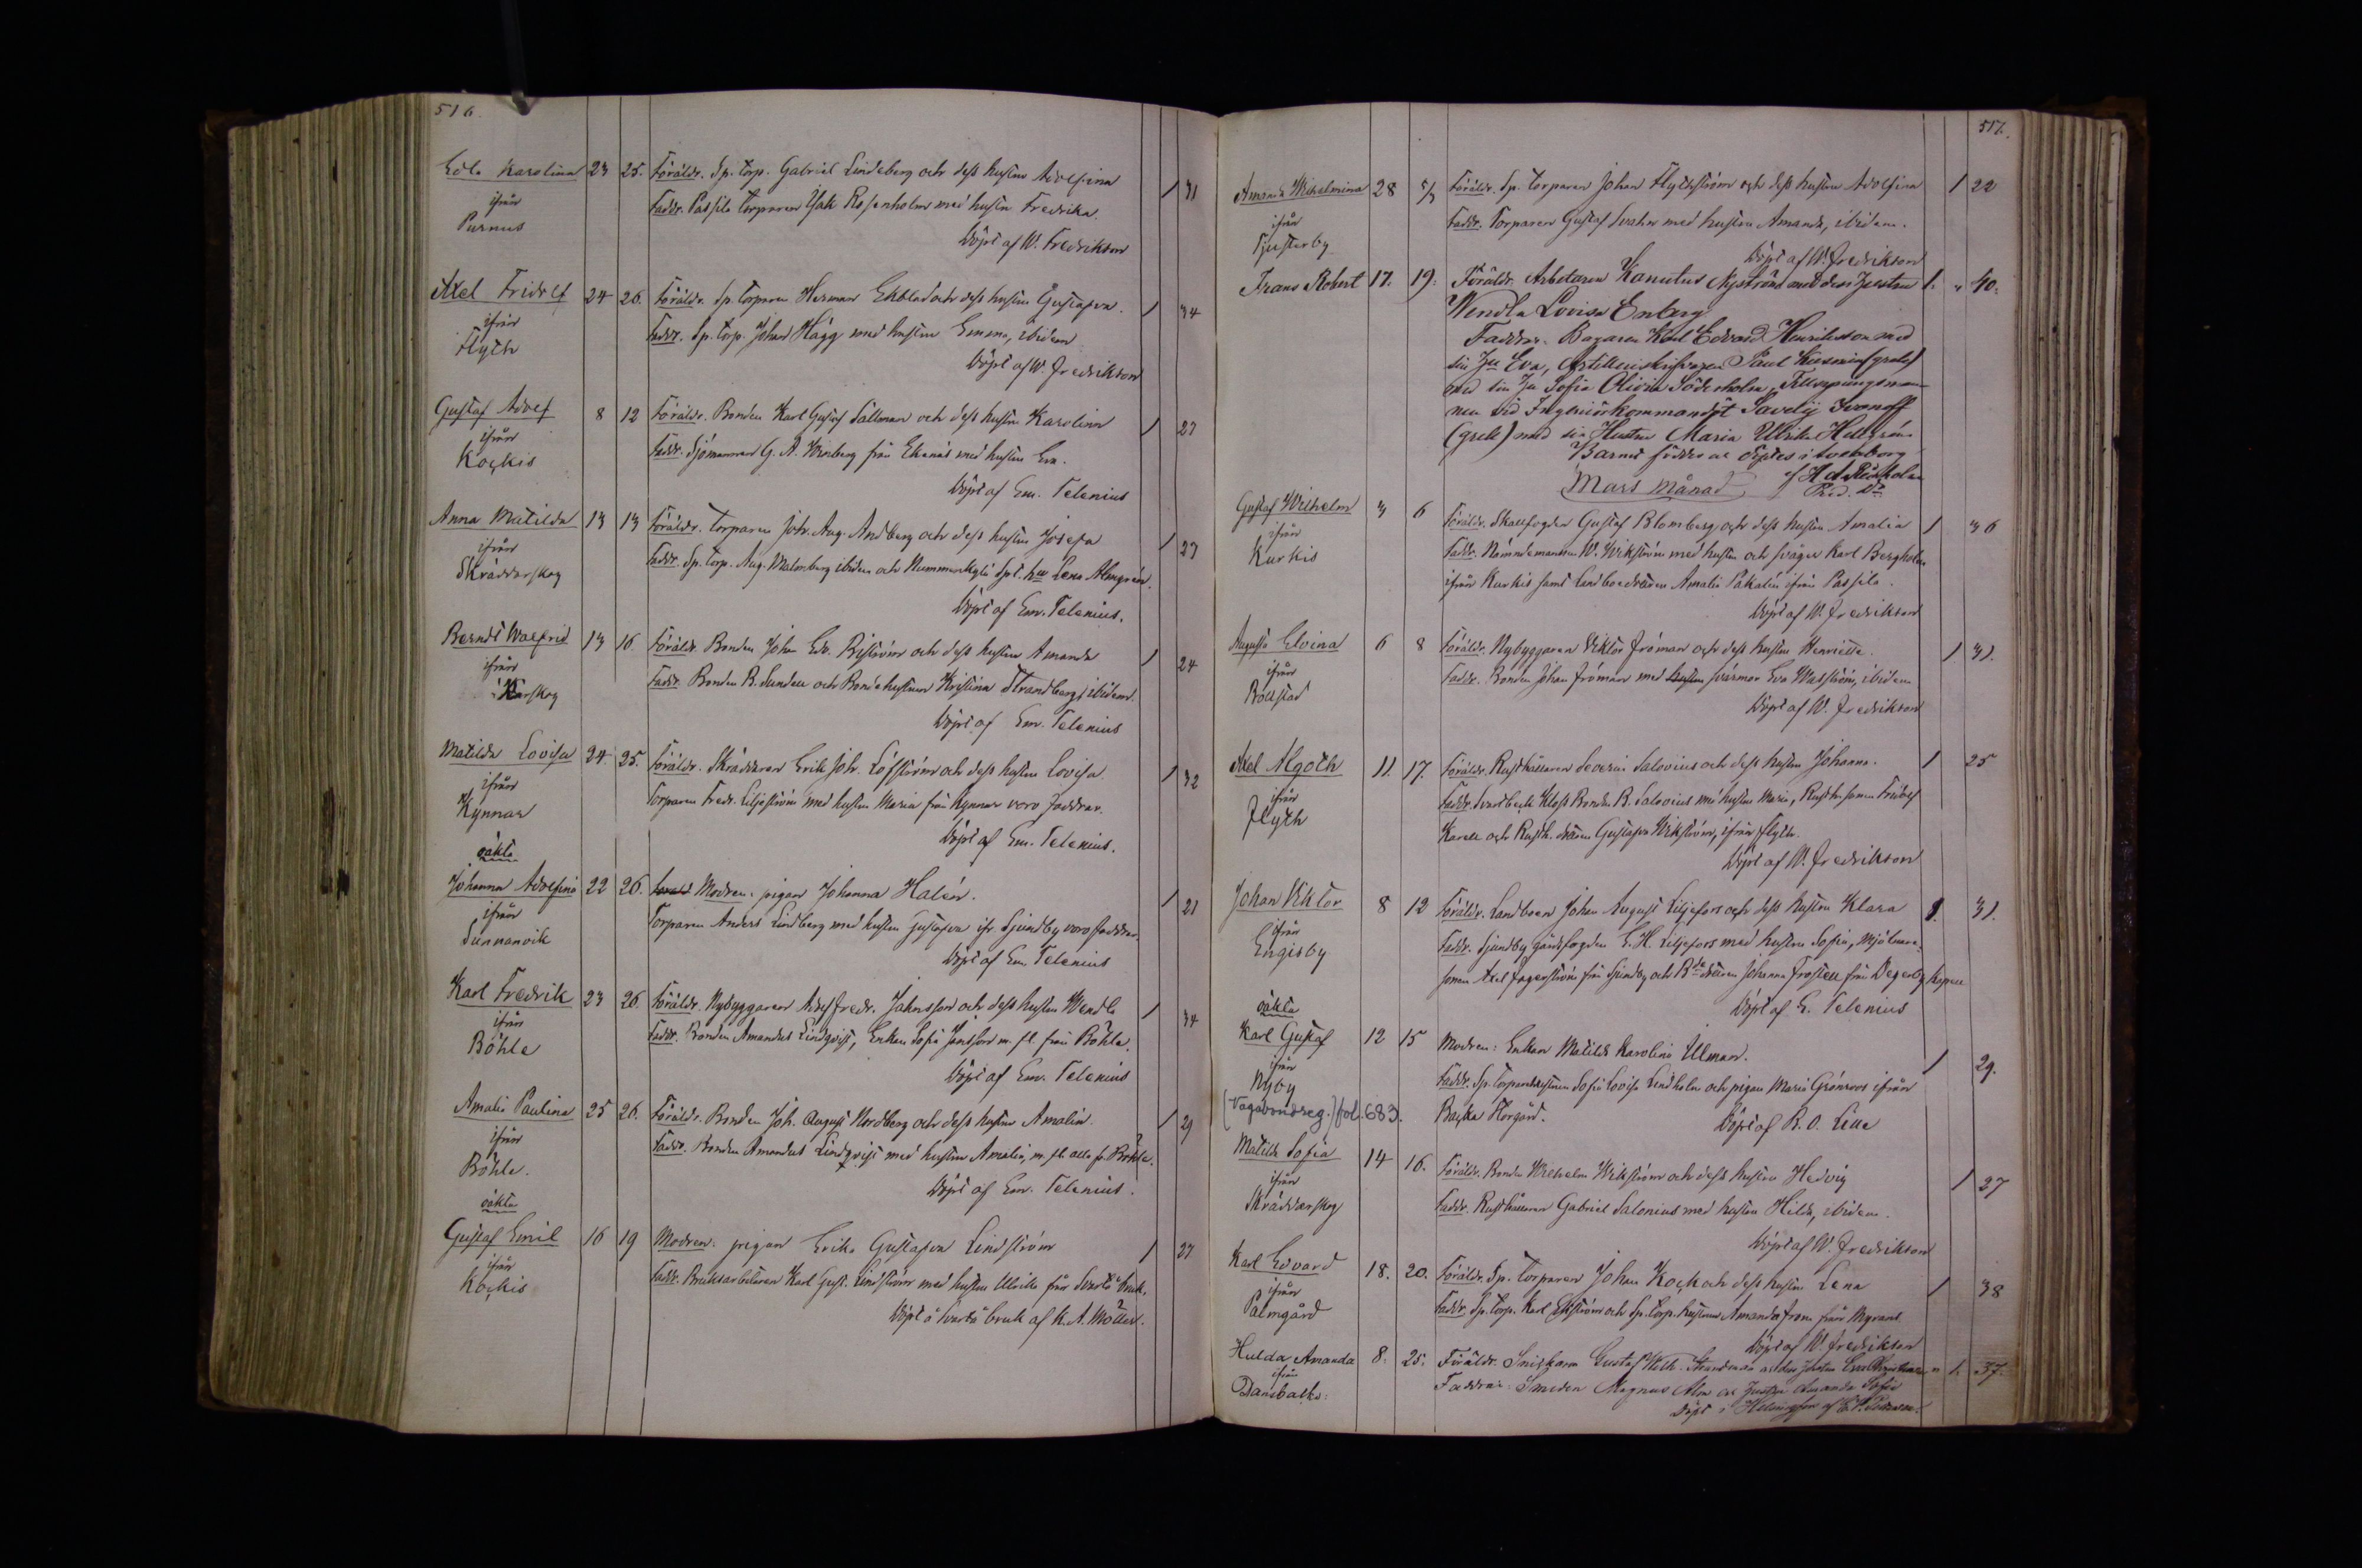 516.
Edla Karolina 23 25. Föräldr. Sp. torp. Gabriel Lindeberg och dess hustru Adolfina / 31
ifrån Faddr. Passila Torparen Isak Rosenholm med hustru Fredrika.
Purnus
Döpt af W. Fredrikson
Axel Fridolf 24 26. Föräldr. Sp. Torparen Herman Ekblad och dess hustru Gustafva. / 34
ifrån Faddr. Sp. Torp. Johan Hägg med hustru Emma, ibidem
Flyth
Döpt af W. Fredrikson
Gustaf Adolf 8 12 Föräldr. Bonden Karl Gustaf Sällman och dess hustru Karolina / 27
ifrån Faddr. Sjömannen G. A. Winberg från Ekenäs med hustru Eva.
Kockis
Döpt af Em. Telenius
Anna Matilda 13 13 Föräldr. Torparen Joh. Aug. Andberg och dess hustru Josefa / 23
ifrån Faddr. Sp. Torp. Aug. Malmberg ibidem och Nummenkylä Spt. hu Lena Almgrén.
Skräddarskog
Döpt af Em. Telenius.
Berndt Walfrid 13 16. Föräldr. Bonden Johan Edv. Biström och dess hustru Amanda / 24
ifrån Faddr. Bonden R. Sundell och Bondehustrun Kristina Strandberg, ibidem.
Karskog
Döpt af Em. Telenius
Matilda Lovisa 24. 25. Föräldr. Skräddaren Erik Joh. Löfström och dess hustru Lovisa. / 32
ifrån Torparen Fredr. Liljeström med hustru Maria från Kynnar voro faddrar.
Kynnar
Döpt af Em. Telenius.
oäkta
Johanna Adolfina 22 26. Modren: pigan Johanna Halén. / 21
ifrån Torparen Anders Lindberg med hustru Gustafva ifr. Sjundby voro faddrar.
Sunnanvik
Döpt af Em. Telenius
Karl Fredrik 23 26. Föräldr. Nybyggaren Adolf Fredr. Jahnsson och dess hustru Wendla / 34
ifrån Faddr. Bonden Amandus Lindqvist, Enkan Sofia Jansson m. fl. från Böhle.
Böhle
Döpt af Em. Telenius
Amalia Paulina 25 26. Föräldr. Bonden Joh. August Nordberg och dess hustru Amalia. / 29
ifrån Faddr. Bonden Amandus Lindqvist med hustru Amalia, m. fl. alla fr. Böhle.
Böhle.
Döpt af Em. Telenius.
oäkta
Gustaf Emil 16 19 Modren: pigan Erika Gustafva Lindström / 27
ifrån Faddr. Bruksarbetaren Karl Gust. Lindström med hustru Ulrika från Svartå bruk.
Kockis
Döpt å Svartå bruk af K. A. Möller.
517.
Amanda Wilhelmina 28 5/3 Föräldr. Sp. Torparen Johan Flythström och dess hustru Adolfina / 22
ifrån Faddr. Torparen Gustaf Svahn med hustru Amanda, ibidem.
Tjusterby
Döpt af W. Fredrikson
Frans Robert 17. 19. Föräldr. Arbetaren Kanutus Nyström med dess hustru 1. " 40.
Wendla Lovisa Enberg
Faddrar. Bagaren Karl Edvard Henriksson med
sin Hu Eva, Paul Kusmin (grek)
med sin Hu Sofia Olivia Söderholm,
nen vid Ingeniörkommandot Savelij Ivanoff
(grek) med sin Hustru Maria Ulrika Hellgrén
Barnet föddes och döptes i Sveaborg
af
Mars månad
Gustaf Wilhelm 3 6 Föräldr. Skallfogden Gustaf Blomberg och dess hustru Amalia / 36
ifrån Faddr. Nämndemannen W. Wikström med hustru och svåger Karl Bergholm
Kurkis ifrån Kurkis samt Landboedottern Amalia Pakalén ifrån Passila.
Döpt af W. Fredrikson
Augusta Elvina 6 8 Föräldr. Nybyggaren Viktor Fröman och dess hustru Henriette. / 31.
ifrån Faddr. Bonden Johan Fröman med hustru svärmor Eva Malström, ibidem
Bölstad
Döpt af W. Fredrikson
Axel Algoth 11. 17. Föräldr. Rusthållaren Severin Salovius och dess hustru Johanna. / 25
ifrån Faddr. Svartbäck Kloss Bonden B. Salovius med hustru Maria, Rusth. sonen Fridolf
Flyth Karell och Rusth. dottern Gustafva Wikström, ifrån Flyth.
Döpt af W. Fredrikson
Johan Viktor 8 12 Föräldr. Landboen Johan August Liljefors och dess hustru Klara 1. 31.
ifrån Faddr. Sjundby gårdsfogden E. H. Liljefors med hustru Sofia, Mjölnare-
Engisby sonen Axel Fagerström från Sjundby och Bde dottern Johanna Frostell från Degerby kapell
Döpt af E. Telenius
oäkta
Karl Gustaf 12 15 Modren: Enkan Matilda Karolina Ulman. / 29.
ifrån Faddr. Sp. Torparehustrun Sofia Lovisa Lindholm och pigan Maria Grönroos ifrån
Nyby Backa Storgård.
(Vagabondreg.) fol. 683. Döpt af R. O. Lille
Matilda Sofia 14 16. Föräldr. Bonden Wilhelm Wikström och dess hustru Hedvig / 27
ifrån Faddr. Rusthållaren Gabriel Salenius med hustru Hilda, ibidem.
Skräddarskog
Döpt af W. Fredrikson
Karl Edvard 18. 20. Föräldr. Sp. Torparen Johan Kock och dess hustru Lena / 38
ifrån Faddr. Sp. Torp. Karl Ekström och Sp. Torp. hustrun Amanda from från Myrans.
Palmgård
Döpt af W. Fredrikson
Hulda Amanda 8. 25. Föräldr. Snickaren Gustaf Wilh. Strandman och dess hustru Eva " 1. 37.
ifrån Faddrar: Smeden Magnus Alm och hustru Amanda Sofia
Dansbacka:
Döpt i Helsingfors af